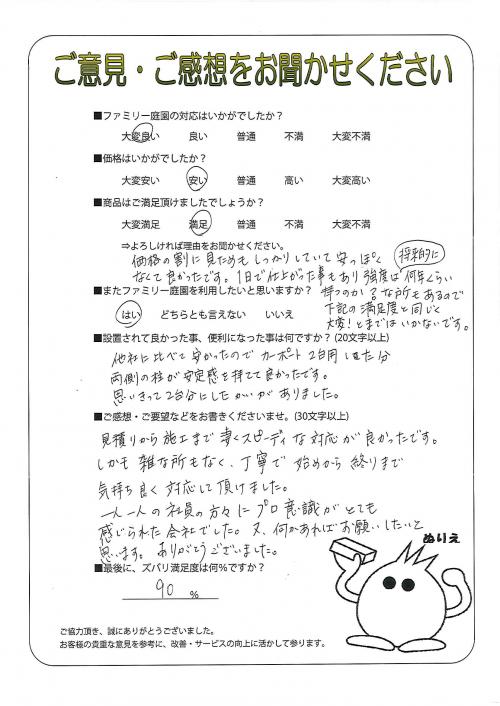 ご意見・ご感想をお聞かせください
■ファミリー庭園の対応はいかがでしたか？
大変良い 良い 普通 不満 大変不満
■価格はいかがでしたか？
大変安い 安い 普通 高い 大変高い
■商品はご満足頂けましたでしょうか？
大変満足 満足 普通 不満 大変不満
⇒よろしければ理由をお聞かせください。
価格の割に見ためもしっかりしていて安っぽく
なくて良かったです。1日で仕上がった事もあり 強度は
将来的に
何年くらい
持つのか？な所もあるので
下記の満足度と同じく
大変！とまではいかないです。
■またファミリー庭園を利用したいと思いますか？
はい どちらとも言えない いいえ
■設置されて良かった事、便利になった事は何ですか？(20文字以上)
他社に比べて安かったのでカーポート2台用にした分
両側の柱が安定感を持てて良かったです。
思いきって2台分にしたかいがありました。
■ご感想・ご要望などをお書きくださいませ。(30文字以上)
見積りから施工まで凄くスピーディな対応が良かったです。
しかも雑な所もなく、丁寧で始めから終りまで
気持ち良く対応して頂けました。
一人一人の社員の方々にプロ意識がとても
感じられた会社でした。又、何かあればお願いしたいと
思います。ありがとうございました。
■最後に、ズバリ満足度は何％ですか？
90 ％
ぬりえ
ご協力頂き、誠にありがとうございました。
お客様の貴重な意見を参考に、改善・サービスの向上に活かして参ります。